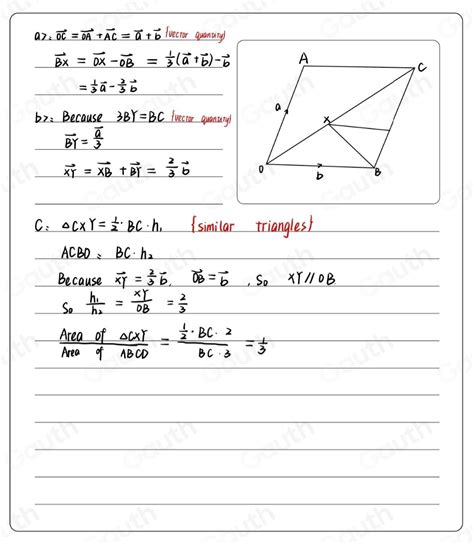 a>: OC⃗ = OA⃗ + AC⃗ = a⃗ + b⃗ {vector quantity}
BX⃗ = OX⃗ - OB⃗ = 1/3(a⃗+b⃗)-b⃗
= 1/3 a⃗ - 2/3 b⃗
b>: Because 3BY=BC {vector quantity}
BY⃗ = a⃗/3
XY⃗ = XB⃗ + BY⃗ = 2/3 b⃗
A
C
a
X
O
b
B
C: △CXY = 1/2 · BC · h₁ {similar triangles}
ACBO = BC · h₂
Because XY⃗ = 2/3 b⃗, OB⃗ = b⃗, So XY // OB
So h₁/h₂ = XY/OB = 2/3
Area of △CXY / Area of ABCD = 1/2 · BC · 2 / BC · 3 = 1/3
Gauth